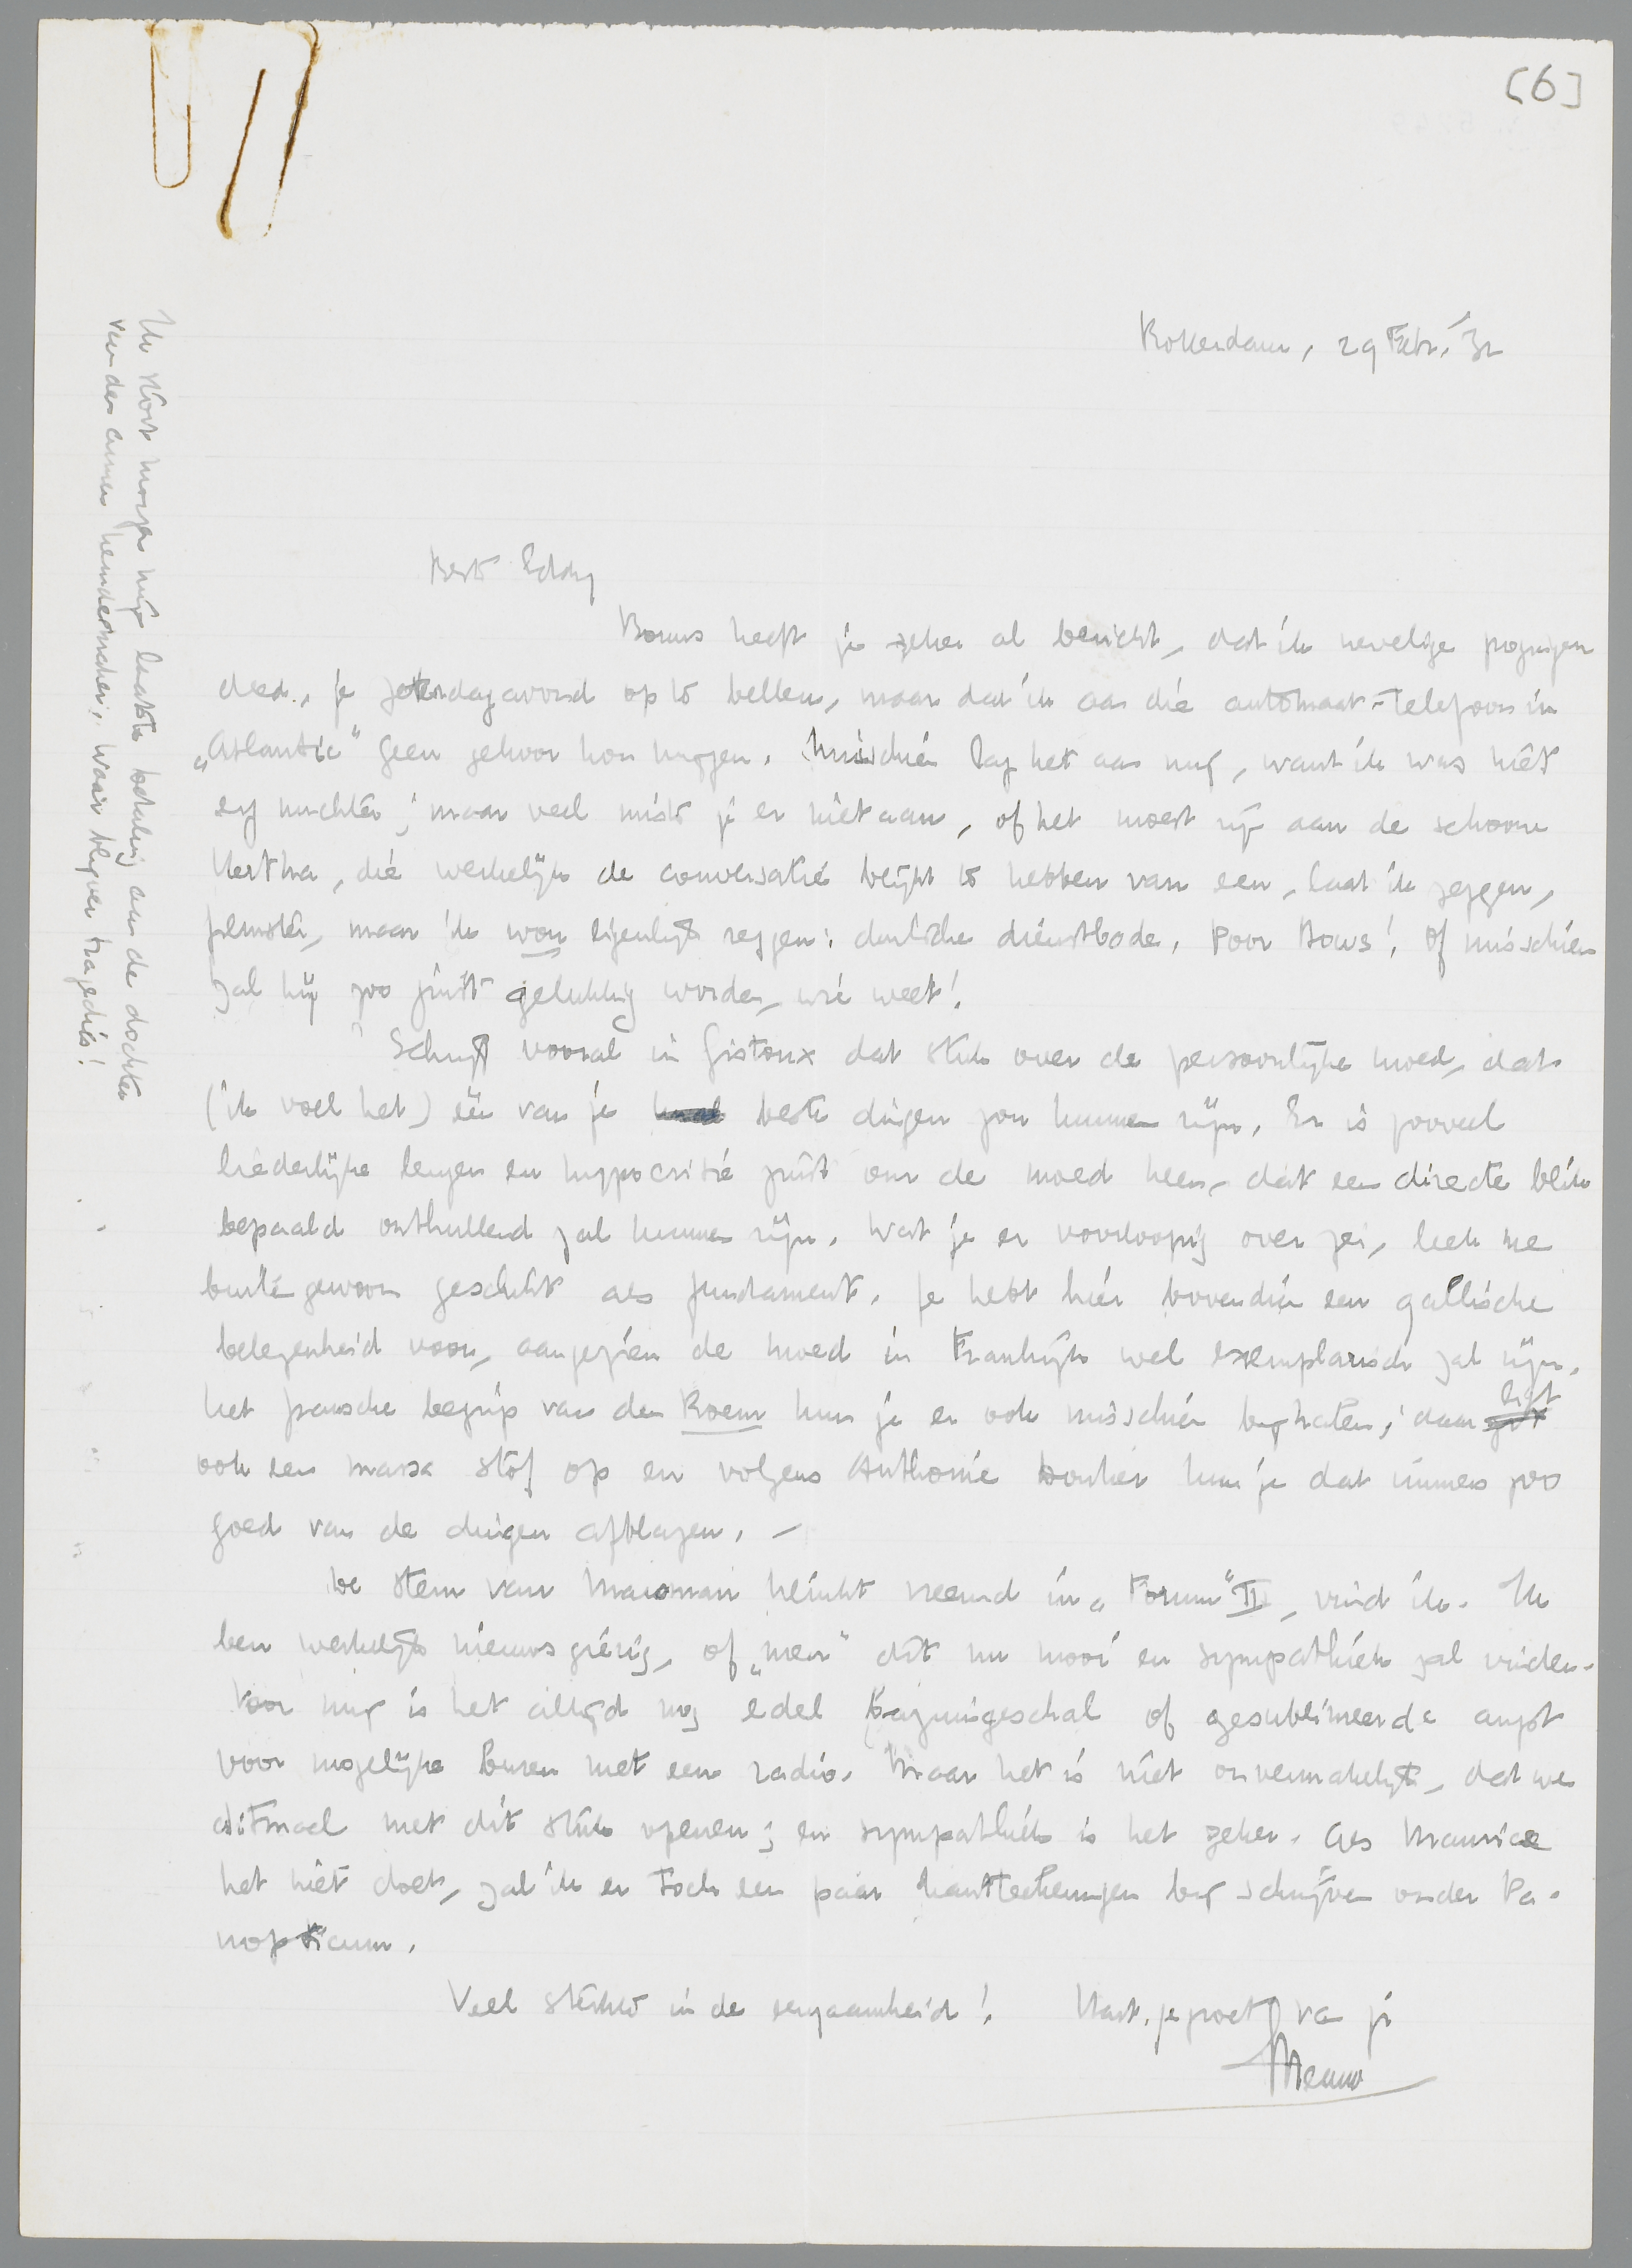 [6]
Rotterdam, 29 Febr. '32
Beste Eddy
Bouws heeft je zeker al bericht, dat ik hevelige pogingen
deed, je Zaterdagavond op te bellen, maar dat ik aan die automaat-telefoon in
„Atlantic" geen gehoor kon krijgen. Misschien lag het aan mij, want ik was niet
erg nuchter; maar veel miste je er niet aan, of het moest zijn aan de schoone
Hertha, die werkelijk de conversatie blijkt te hebben van een, laat ik zeggen,
filmster, maar ik wou eigenlijk zeggen: duitsche dienstbode. Poor Bouws! Of misschien
zal hij zoo juist gelukkig worden, wie weet!
Schrijf vooral in Gistoux dat stuk over de persoonlijke moed, dat
(ik voel het) één van je beste dingen zou kunnen zijn. Er is zooveel
liederlijke leugen en hyppocrisie juist om de moed heen, dat een directe blik
bepaald onthullend zal kunnen zijn. Wat je er voorloopig over zei, leek me
buitengewoon geschikt als fundament. Je hebt hier bovendien een gallische
belegenheid voor, aangezien de moed in Frankrijk wel exemplarisch zal zijn.
Het fransche begrip van den Roem kun je er ook misschien bijhalen; daar ligt
ook een massa stof op en volgens Anthonie Donker kun je dat immers zoo
goed van de dingen afblazen. –
De stem van Marsman klinkt vreemd in „Forum" II, vind ik. Ik
ben werkelijk nieuwsgierig, of „men" dit nu mooi en sympathiek zal vinden.
Voor mij is het altijd nog edel bazuingeschal of gesublimeerde angst
voor mogelijke buren met een radio. Maar het is niet onvermakelijk, dat we
ditmaal met dit stuk openen; en sympathiek is het zeker. Als Maurice
het niet doet, zal ik er toch een paar kantteekeningen bij schrijven onder Pa-
nopticum.
Veel sterkte in de eenzaamheid! Hart. gegroet van je
Menno
Ik stort morgen mijn laatste betaling aan de dochter
van den armen hemdenmaker; waar blijven tragedies!